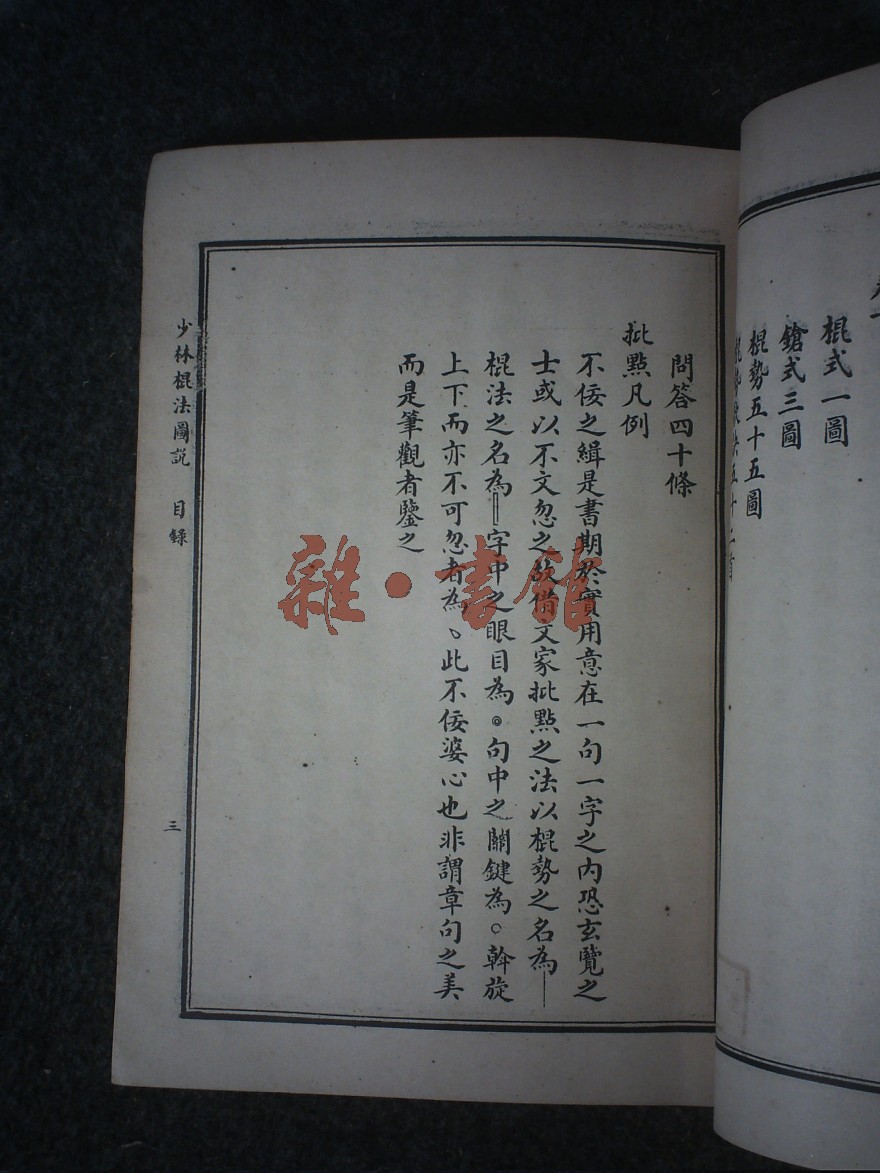 棍式一圖
鎗式三圖
棍勢五十五圖
問答四十條
批點凡例
不佞之緝是書期於實用意在一句一字之內恐玄覽之
士或以不文忽之故借文家批點之法以棍勢之名為│
棍法之名為‖字中之眼目為◎句中之關鍵為○斡旋
上下而亦不可忽者為、此不佞婆心也非謂章句之美
而是筆觀者鑒之
少林棍法圖説 目錄
三
雜·書館